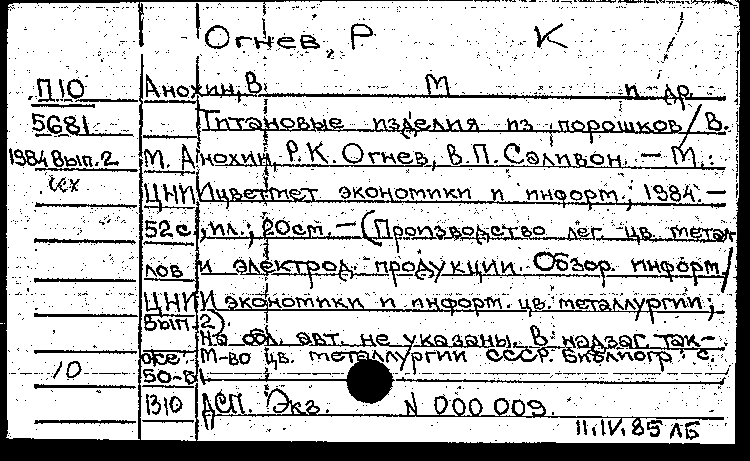 Огнев, Р К
П10 Анохин, В. М и др.
5681 Титановые изделия из порошков / В.
1984 Вып. 2 М. Анохин, Р.К. Огнев, В.П. Сэливон. — М.:
ЦНИИцветмет экономики и информ., 1984. —
52 с., ил.; 20 см. — (Производство лег. цв. метал
лов и электрод. продукции. Обзор. информ. /
ЦНИИ экономики и информ. цв. металлургии;
Вып. 2)
На обл. авт. не указаны. В надзаг. так-
же: М-во цв. металлургии СССР. Библиогр.: с.
10 50-51.
1310 ДСП. Экз. N 000 009.
11.IV.85 ЛБ